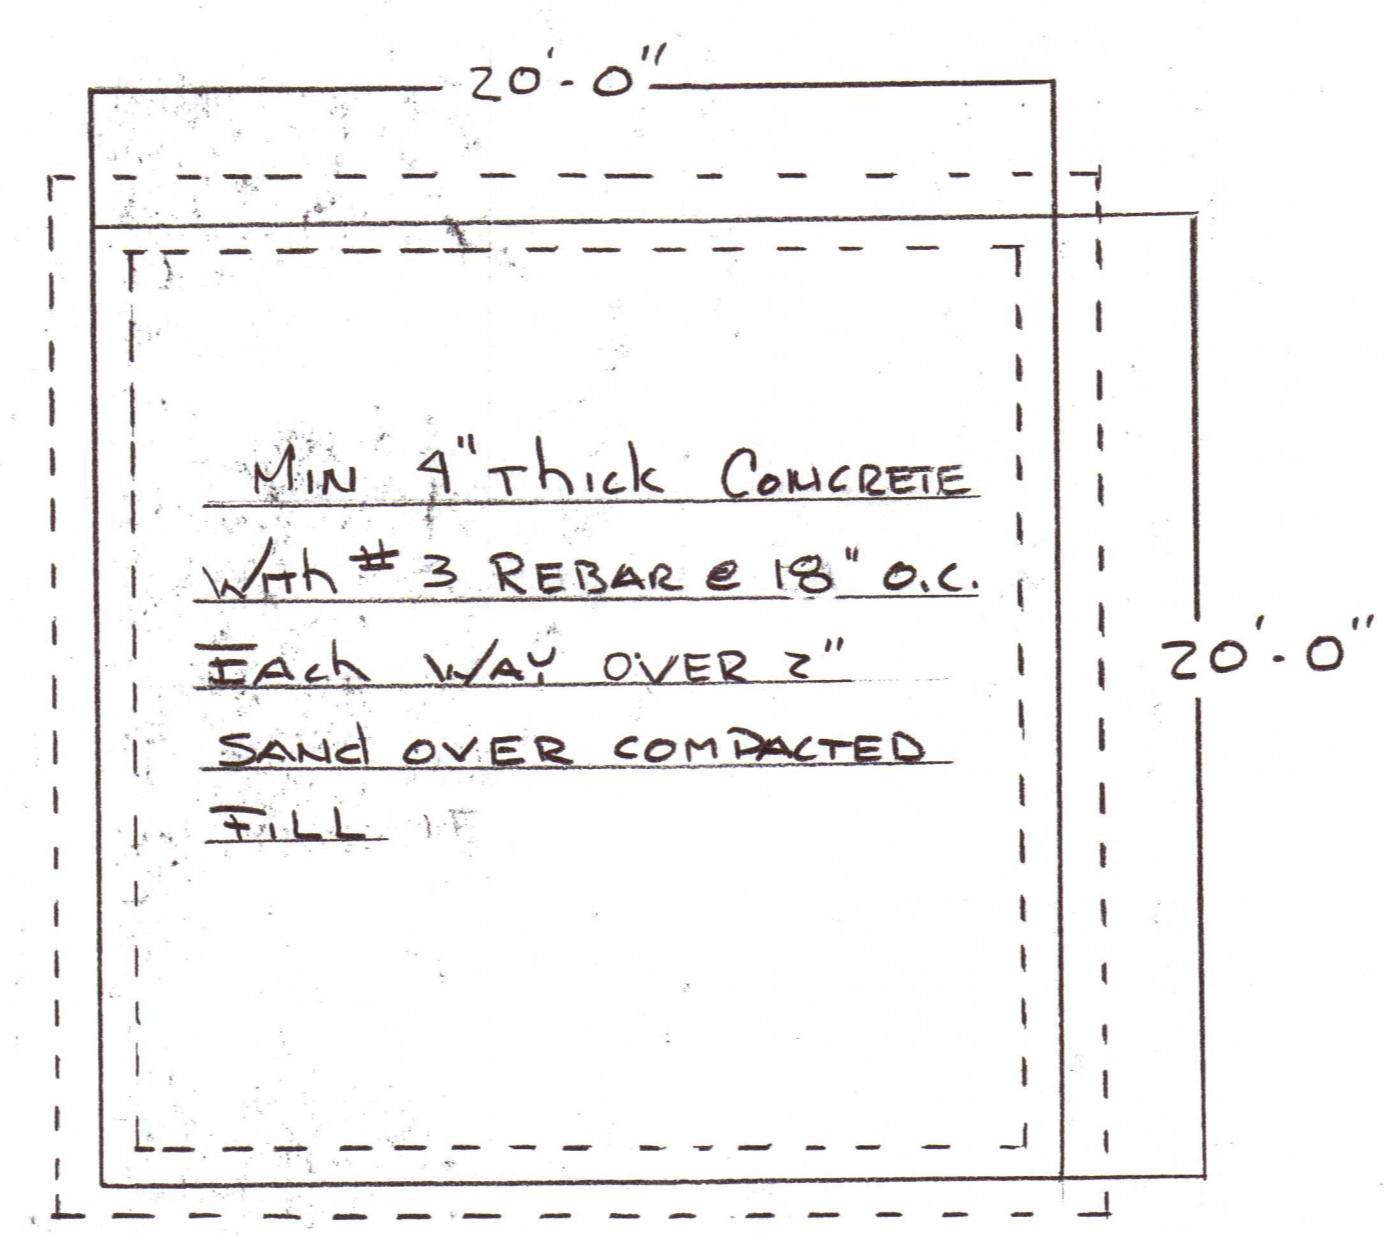 20'-0"
MIN 4" Thick CONCRETE
With #3 REBAR @ 18" O.C.
EAch WAY OVER 2"
20'-0"
SANd OVER COMPACTED
FILL